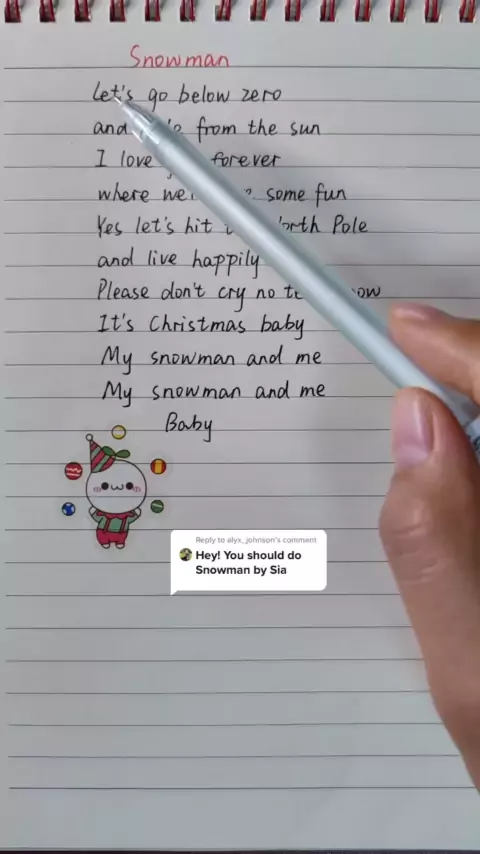 Snowman
Let's go below zero
and from the sun
I love forever
where we some fun
Yes let's hit North Pole
and live happily
Please don't cry no now
It's Christmas baby
My snowman and me
My snowman and me
Baby
Reply to alyx_johnson's comment
Hey! You should do
Snowman by Sia